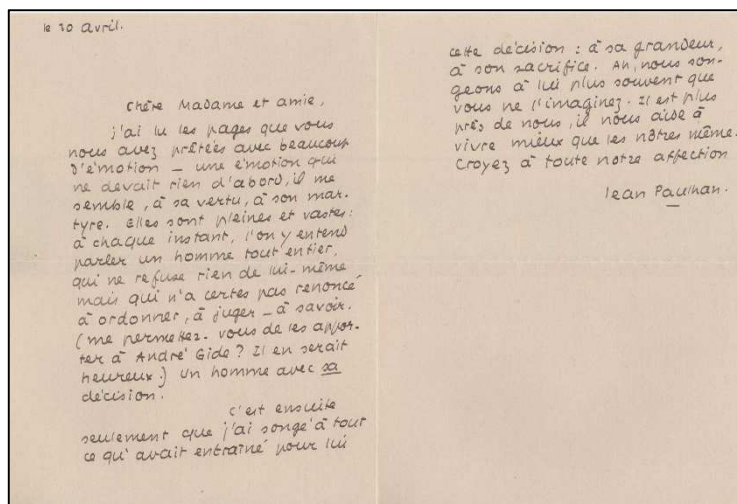 le 20 avril.
Chère Madame et amie,
j'ai lu les pages que vous
nous avez prêtées avec beaucoup
d'émotion — une émotion qui
ne devait rien d'abord, il me
semble, à sa vertu, à son mar-
tyre. Elles sont pleines et vastes:
à chaque instant, l'on y entend
parler un homme tout entier,
qui ne refuse rien de lui-même
mais qui n'a certes pas renoncé
à ordonner, à juger — à savoir.
(me permettez-vous de les appor-
ter à André Gide? Il en serait
heureux.) Un homme avec sa
décision.
C'est ensuite
seulement que j'ai songé à tout
ce qu'avait entraîné pour lui
cette décision : à sa grandeur,
à son sacrifice. Ah, nous son-
geons à lui plus souvent que
vous ne l'imaginez. Il est plus
près de nous, il nous aide à
vivre mieux que les nôtres même.
Croyez à toute notre affection
Jean Paulhan.